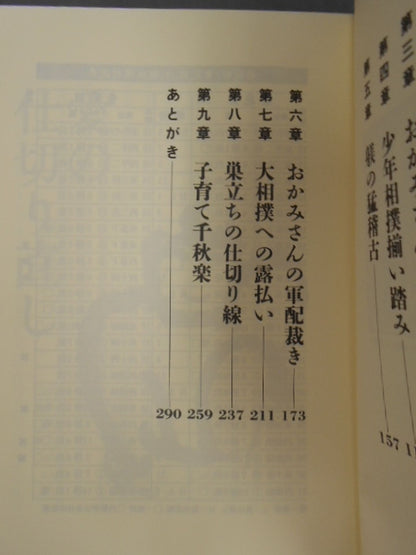 第三章
第四章 少年相撲揃い踏み
第五章 嬢の猛稽古 157
第六章 おかみさんの軍配裁き 173
第七章 大相撲への露払い 211
第八章 巣立ちの仕切り線 237
第九章 子育て千秋楽 259
あとがき 290